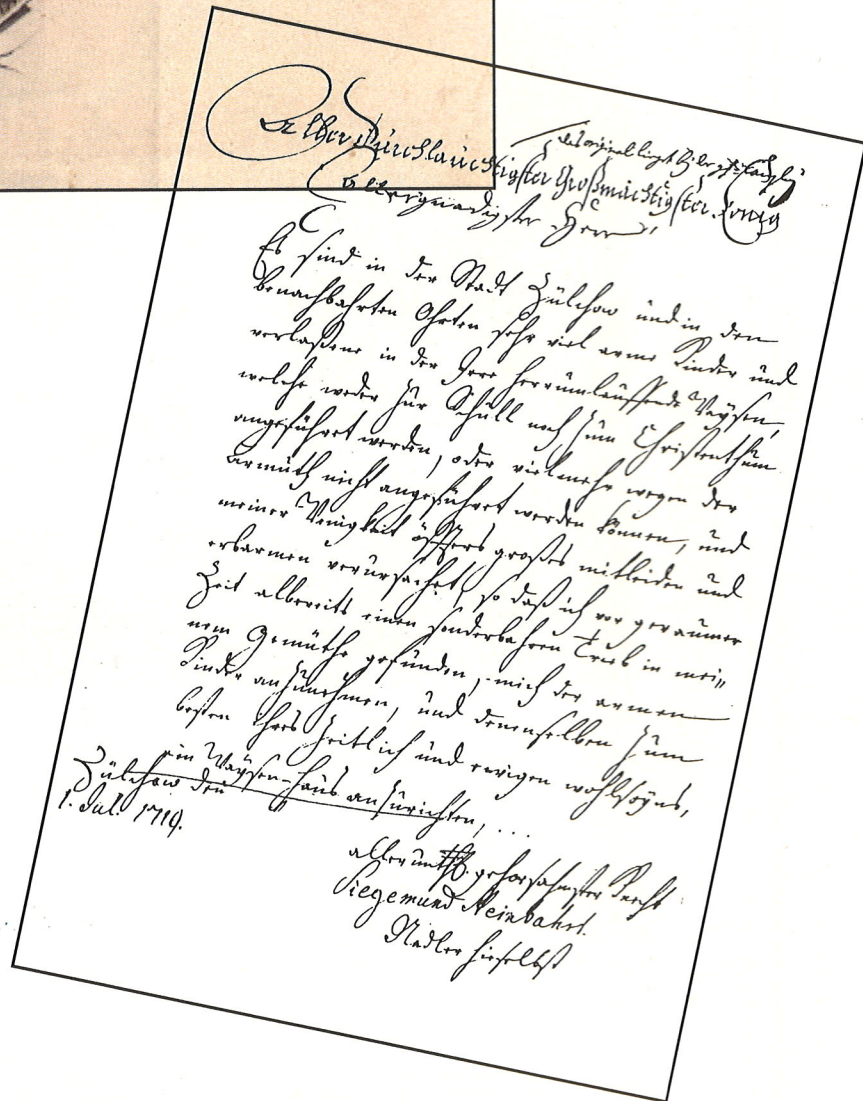 das original liegt
Aller Durchlauchtigster Großmächtigster König
allergnädigster Herr,
Es sind in der Stadt Züllchow und in den
benachbahrten Ohrten sehr viel arme Kinder und
verlaßene in der Irre herrümlauffende Waÿsen,
welche weder zur Schull noch zum Christenthum
angeführet werden, oder vielmehr wegen der
Armuth nicht angeführet werden können, und
meiner Wenigkeit öffters großes mitleiden und
erbarmen verursachet, so daß ich vor geraumer
Zeit albereits einen sonderbahren Trieb in mei„
nem Gemüthe gefunden, mich der armen
Kinder anzunehmen, und denenselben zum
besten ihres zeitlich und ewigen wohlseÿns,
ein Waÿsen-Haus anzurichten, ...
Zülchow den
1. Jul. 1719.
gehorsahmster Knecht
Siegemund Steinbahrt.
Nadler hieselbst